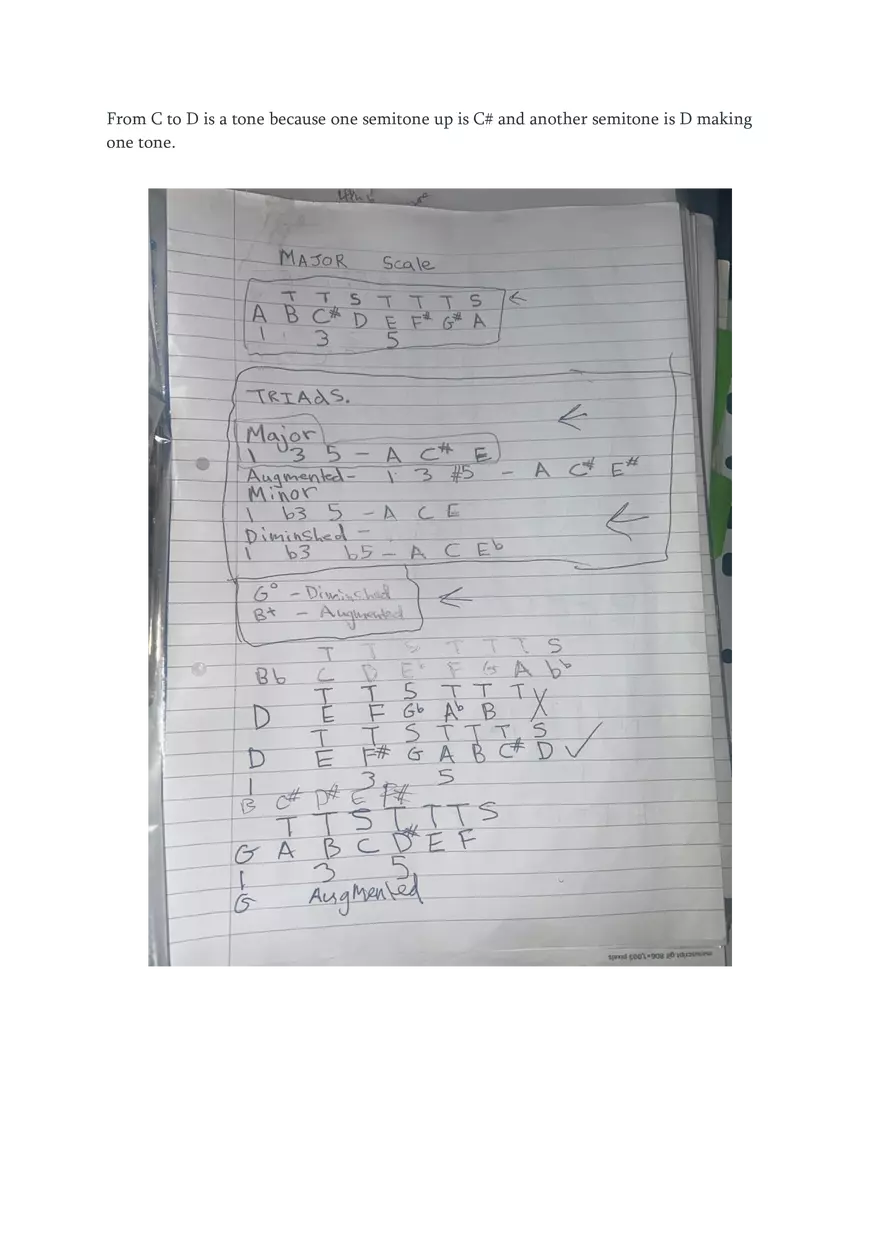 From C to D is a tone because one semitone up is C# and another semitone is D making
one tone.
MAJOR Scale
T T S T T T S
A B C# D E F# G# A
1 3 5
TRIAdS.
Major
1 3 5 - A C# E
Augmented - 1 3 #5 - A C# E#
Minor
1 b3 5 - A C E
Diminshed -
1 b3 b5 - A C Eb
G° - Diminshed
B+ - Augmented
T T S T T T S
Bb C D Eb F G A bb
T T S T T T X
D E F Gb Ab B
T T S T T T S
D E F# G A B C# D ✓
1 3 5
B C# D# E F#
T T S T T T S
G A B C D# E F
1 3 5
G Augmented